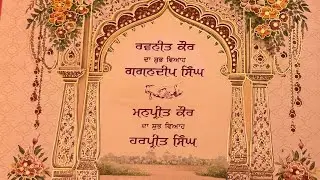 ਰਵਨੀਤ ਕੌਰ
ਦਾ ਸ਼ੁਭ ਵਿਆਹ
ਗਗਨਦੀਪ ਸਿੰਘ
ਮਨਪ੍ਰੀਤ ਕੌਰ
ਦਾ ਸ਼ੁਭ ਵਿਆਹ
ਹਰਪ੍ਰੀਤ ਸਿੰਘ